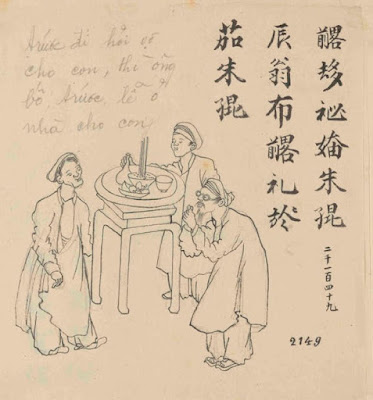 Trước đi hỏi vợ
cho con, thì ông
bố, trước, lễ ở
nhà cho con
朱
辰翁布礼於
茹朱
二千一百四十九
2149